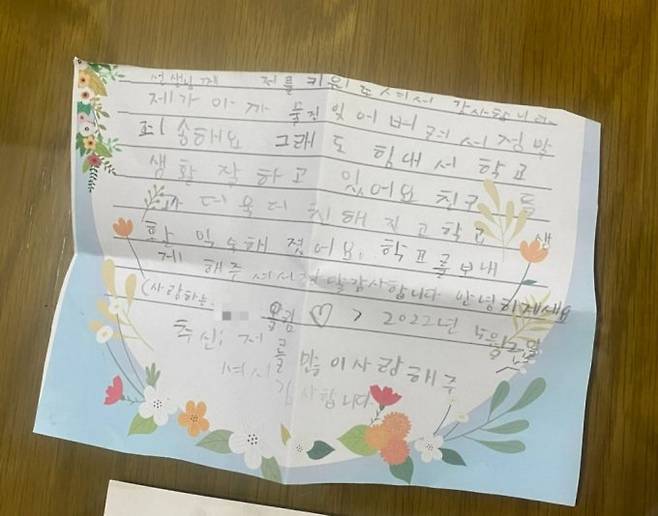 선생님께 저를 키워 주셔서 감사합니다
제가 아까 물건 잊어버려서 정말
죄송해요 그래도 힘내서 학교
생활 잘하고 있어요 친구들
과 더욱더 친해지고 학교 생
활 익숙해졌어요. 학교를 보내
게 해주셔서 감사합니다 안녕히계세요
(사랑하는 올림 ♡ > 2022년
추신: 저를
많이사랑해주
셔서
감사합니다